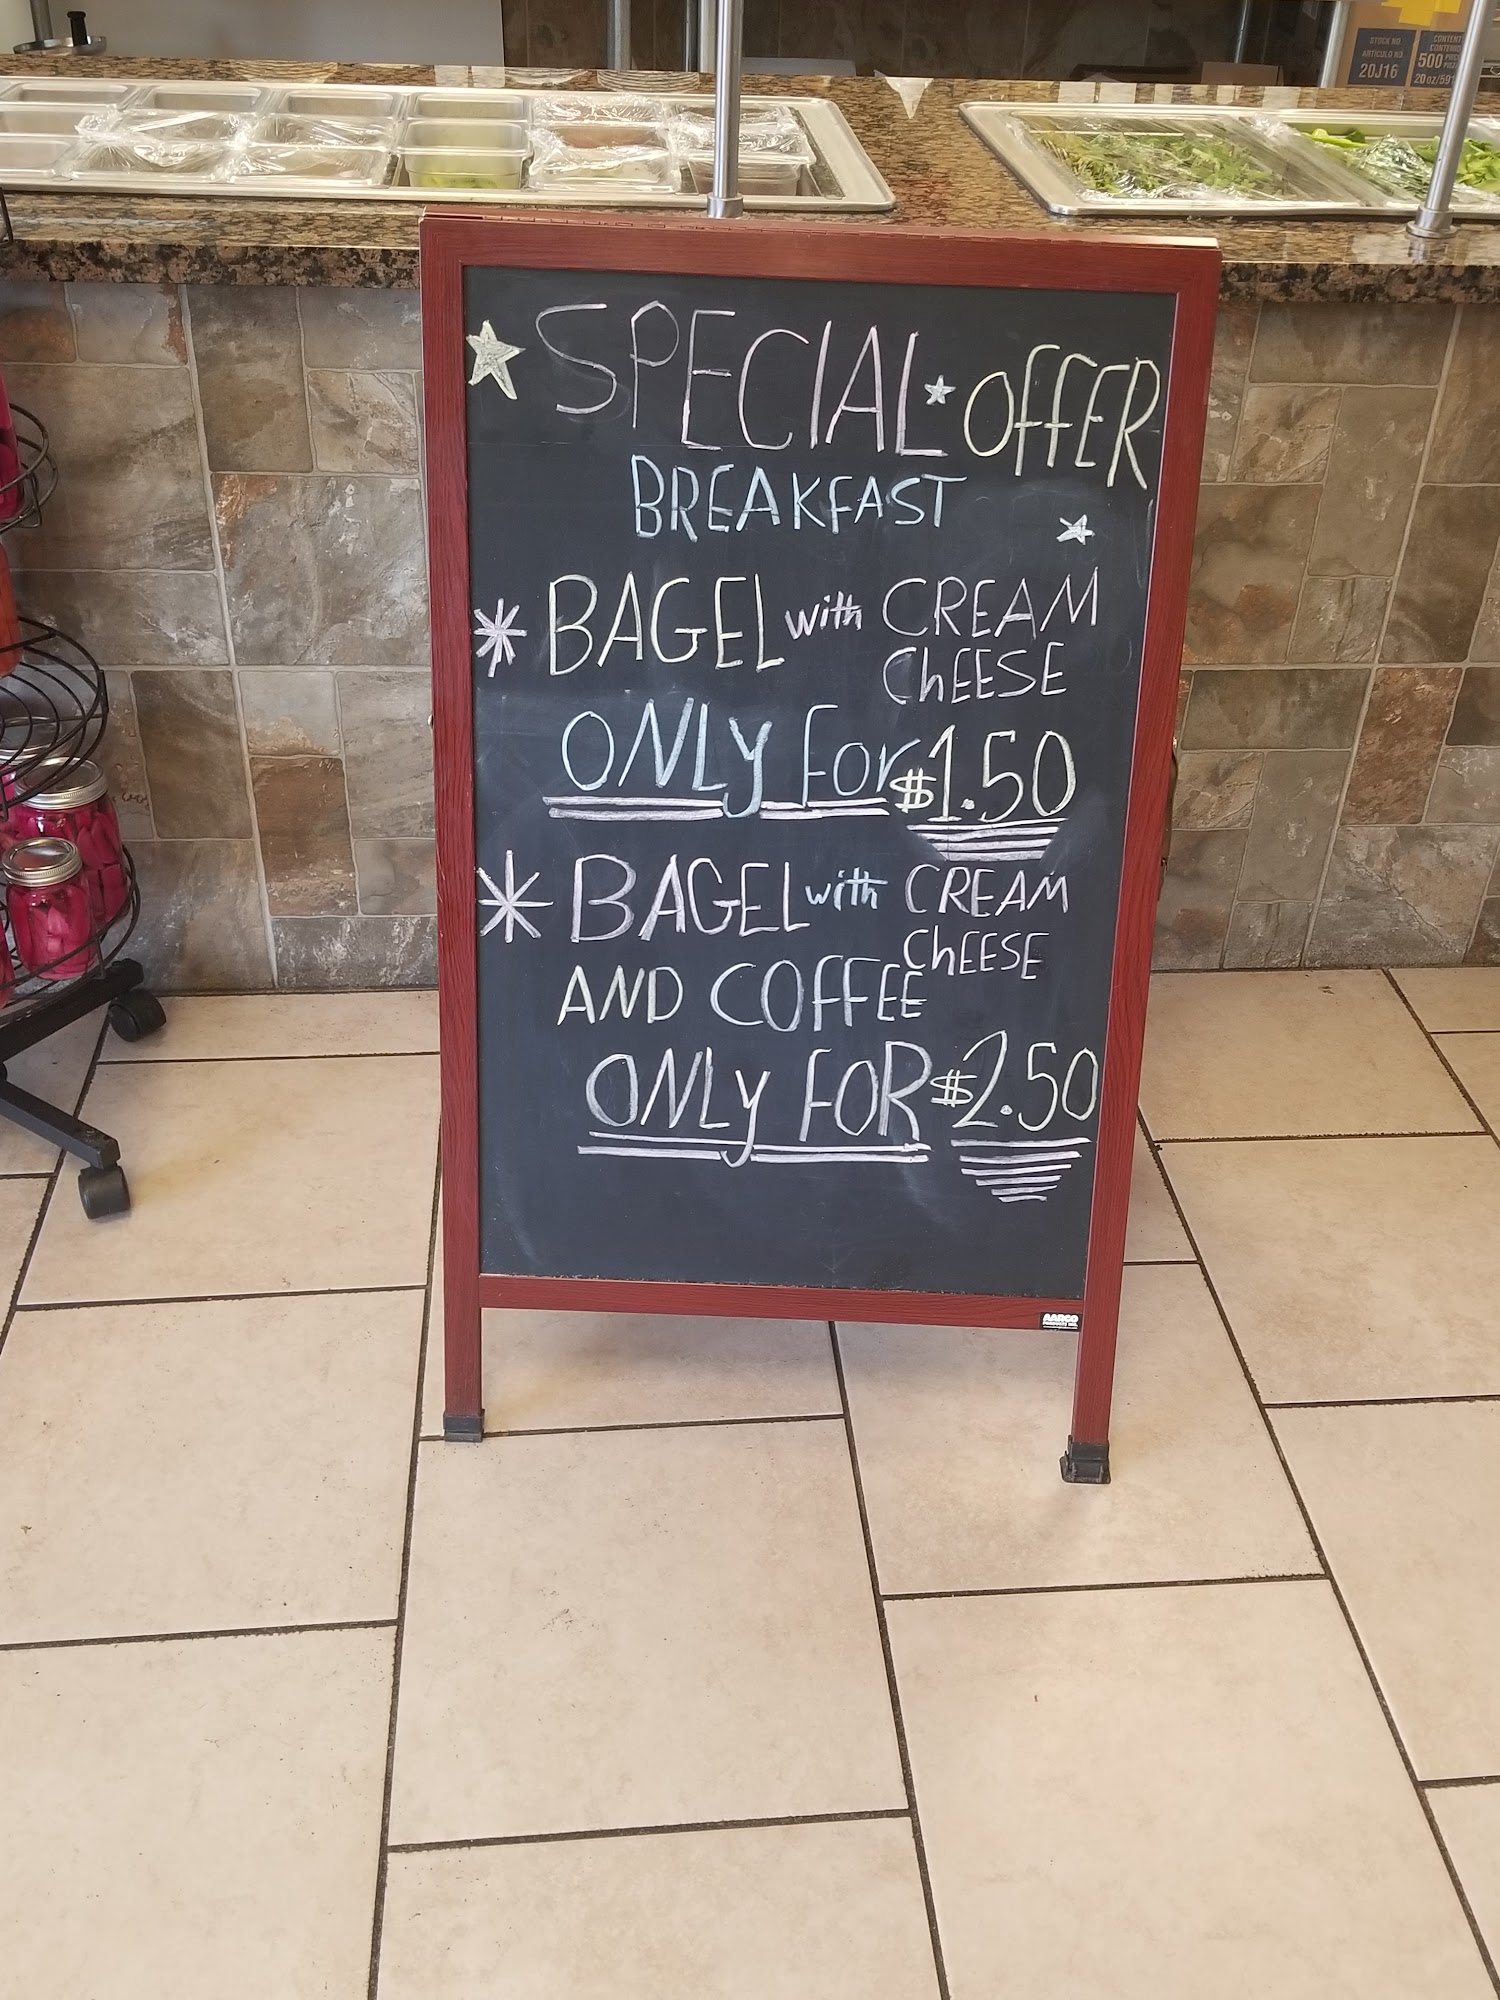 STOCK NO
ARTICULO NO
20J16
500
20 oz/591
SPECIAL OFFER
BREAKFAST
BAGEL with CREAM CHEESE
ONLY For $1.50
BAGEL with CREAM CHEESE
AND COFFEE
ONLY FOR $2.50
AARCO